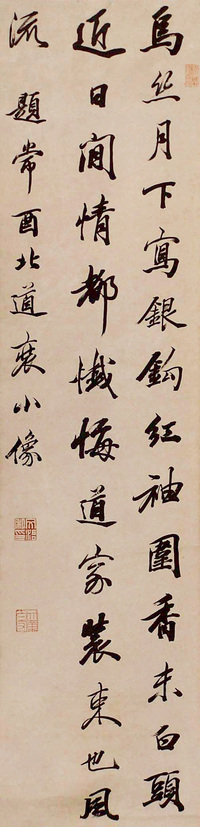 烏絲月下寫銀鉤紅袖圍香未白頭
近日閒情都懺悔道家裝束也風
流 題常酉北道裝小像